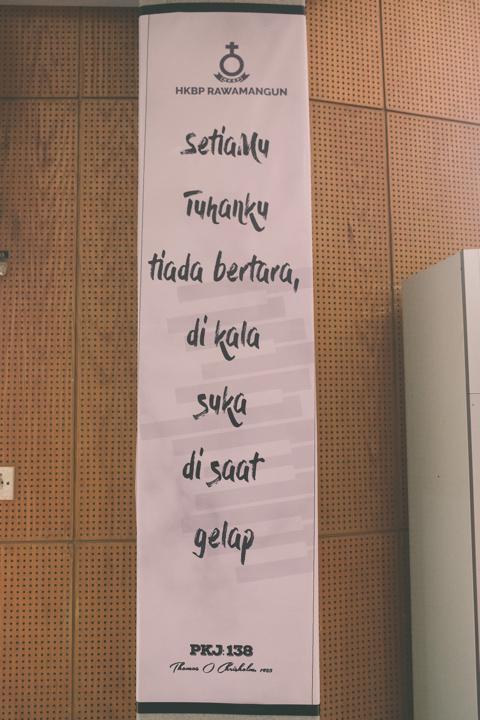 HKBP RAWAMANGUN
SetiaMu
Tuhanku
tiada bertara,
di kala
suka
di saat
gelap
PKJ: 138
Thomas O Chisholm 1923